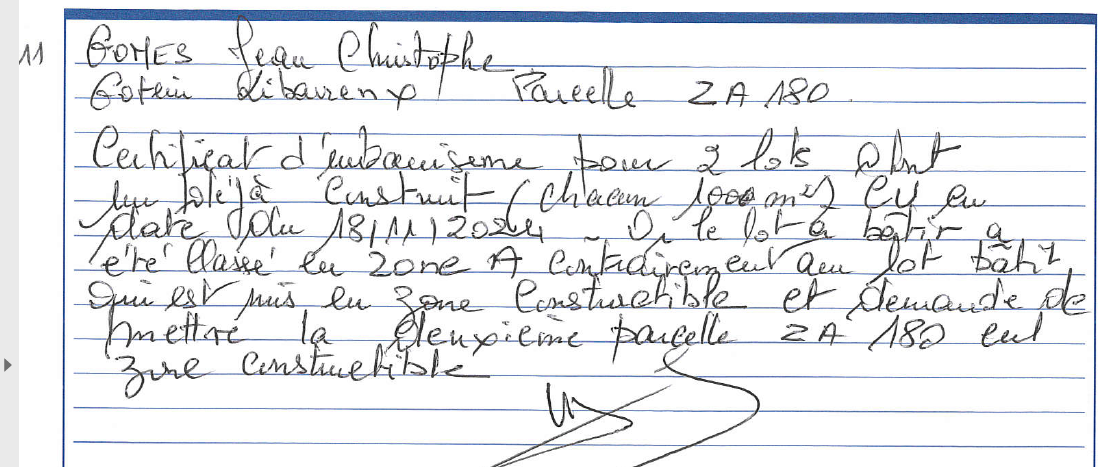 11
GOMES Jean Christophe
Gotein Libarrenx Parcelle ZA 180.
Certificat d'urbanisme pour 2 lots dont
un déjà construit (chacun 1000 m²) CU en
date du 18/11/2024 _ Or le lot à bâtir a
été classé en zone A contrairement au lot bâti,
qui est mis en zone constructible et demande de
mettre la deuxième parcelle ZA 180 en
zone constructible